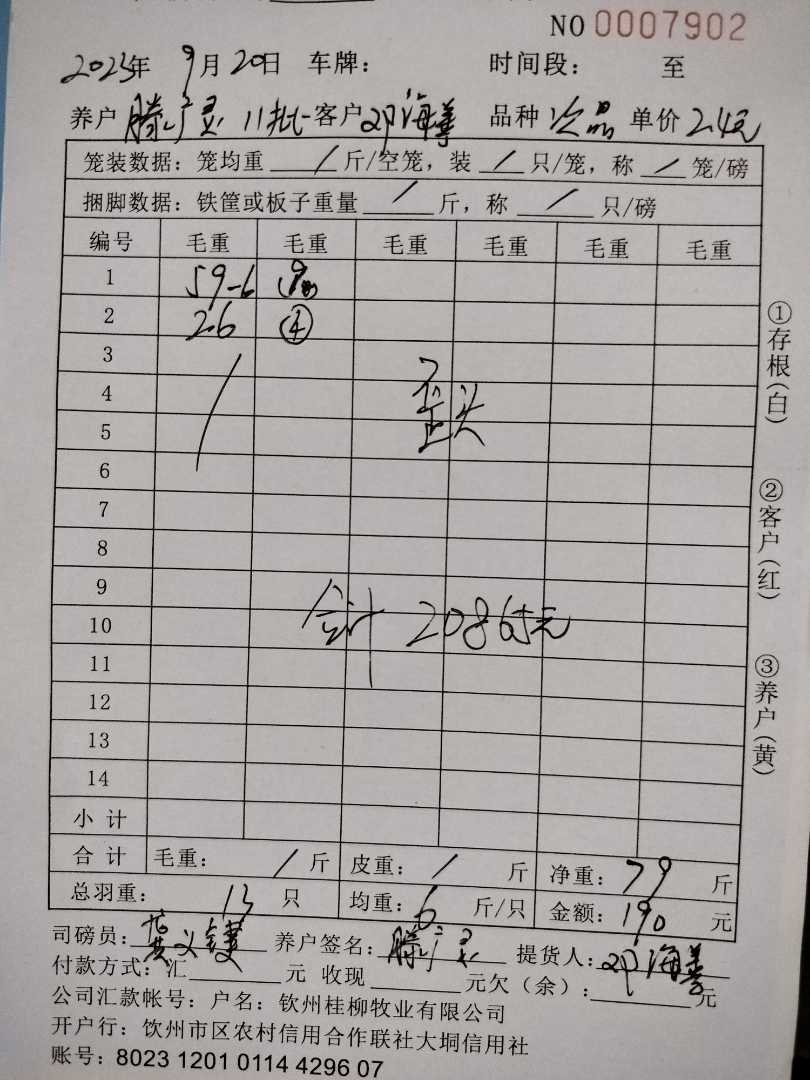 NO 0007902
2025年 9月20日 车牌： 时间段： 至
养户 滕广灵 11批 客户 邓海善 品种 次品 单价 2.4元
笼装数据：笼均重 / 斤/空笼，装 / 只/笼，称 / 笼/磅
捆脚数据：铁筐或板子重量 / 斤，称 / 只/磅
编号 毛重 毛重 毛重 毛重 毛重 毛重
1 59-6
2 26 ④
3
4 /
5 歪头
6
7
8
9
10 合计 20865元
11
12
13
14
小计
合计 毛重： / 斤 皮重： / 斤 净重：79 斤
总羽重： 13 只 均重：6 斤/只 金额：190 元
司磅员： 养户签名：滕广灵 提货人：邓海善
付款方式：汇 元 收现 元欠（余）： 元
公司汇款帐号：户名：钦州桂柳牧业有限公司
开户行：饮州市区农村信用合作联社大垌信用社
账号：8023 1201 0114 4296 07
①存根（白）
②客户（红）
③养户（黄）